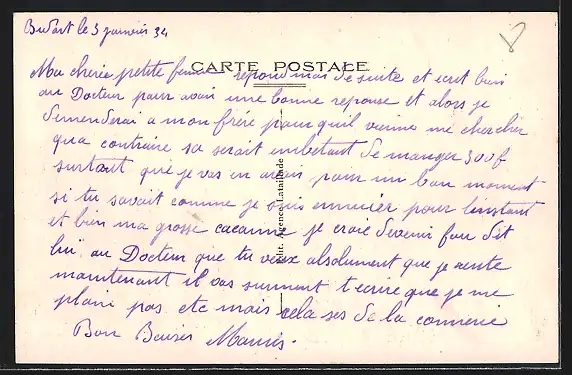 Budart le 3 janvier 34
CARTE POSTALE
Ma cherie petite femme repond mai de suite et ecrit bien
au Docteur pour avoir une bonne reponse et alors je
demenderai a mon frère pour quil vienne me chercher
qua contraire sa serait embetant de manger 300f
surtout que je vas en avoir pour un bon moment
si tu savait comme je suis ennuier pour linstant
et bien ma grosse je craie devenir fou dit
lui au Docteur que tu veux absolument que je rentre
maintenant il vas surment t ecrire que je me
plain pas etc mais cela ses de la connerie
Bon Baiser Mauris.
Edit. Agence Lataillade